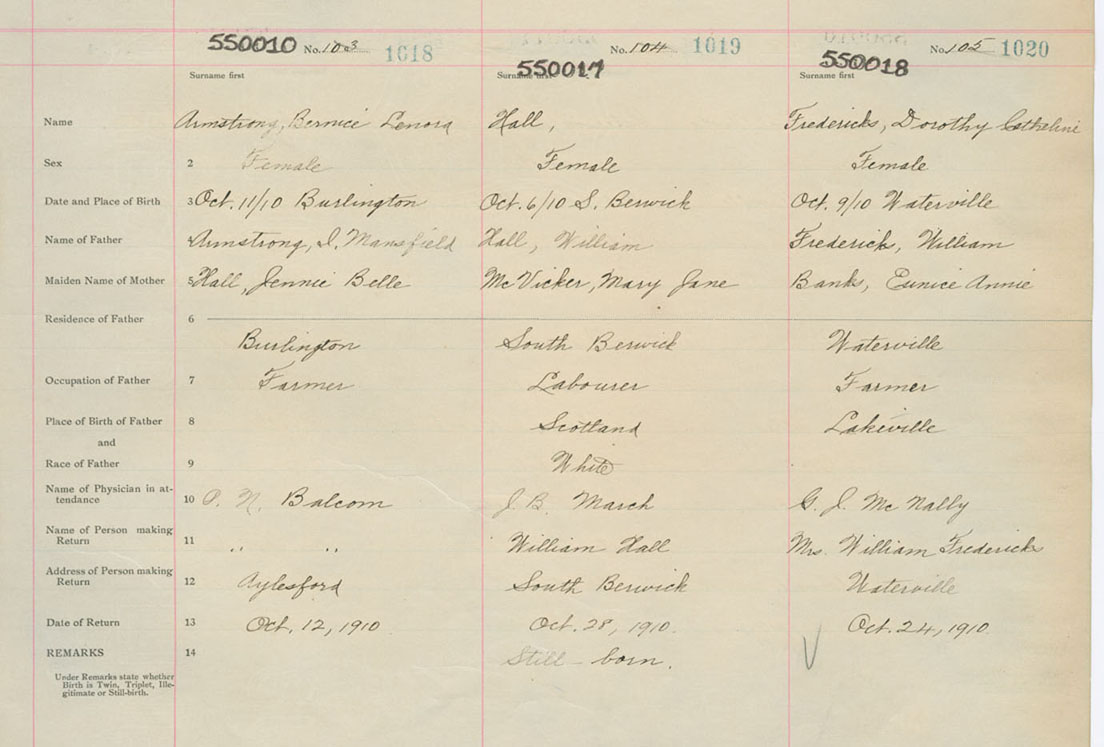 550010 No. 103 1618
550017 No. 104 1019
550018 No. 105 1020
Surname first Surname first Surname first
Name Armstrong, Bernice Lenora Hall, Fredericks, Dorothy Catheline
Sex 2 Female Female Female
Date and Place of Birth 3 Oct. 11/10 Burlington Oct. 6/10 S. Berwick Oct. 9/10 Waterville
Name of Father 4 Armstrong, I. Mansfield Hall, William Fredericks, William
Maiden Name of Mother 5 Hall, Jennie Belle McVicker, Mary Jane Banks, Eunice Annie
Residence of Father 6
Burlington South Berwick Waterville
Occupation of Father 7 Farmer Labourer Farmer
Place of Birth of Father 8 Scotland Lakeville
and
Race of Father 9 White
Name of Physician in at-
tendance 10 P. N. Balcom J. B. March G. J. McNally
Name of Person making
Return 11 " " William Hall Mrs. William Fredericks
Address of Person making
Return 12 Aylesford South Berwick Waterville
Date of Return 13 Oct. 12, 1910 Oct. 28, 1910. Oct. 24, 1910.
REMARKS 14 Still-born.
Under Remarks state whether
Birth is Twin, Triplet, Ille-
gitimate or Still-birth.